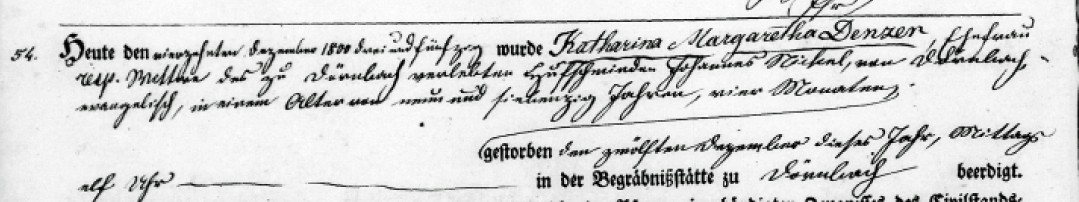 54. Heute den vierzehnten Dezember 1800 drei und fünfzig wurde Katharina Margaretha Denzer, Ehefrau
resp. Wittwe des zu Dörnbach verlebten Hufschmieden Johannes Nickel, von Dörnbach
evangelisch, in einem Alter von neun und siebenzig Jahren, vier Monaten,
gestorben den zwölften Dezember dieses Jahr, Mittags
elf Uhr in der Begräbnißstätte zu Dörnbach beerdigt.